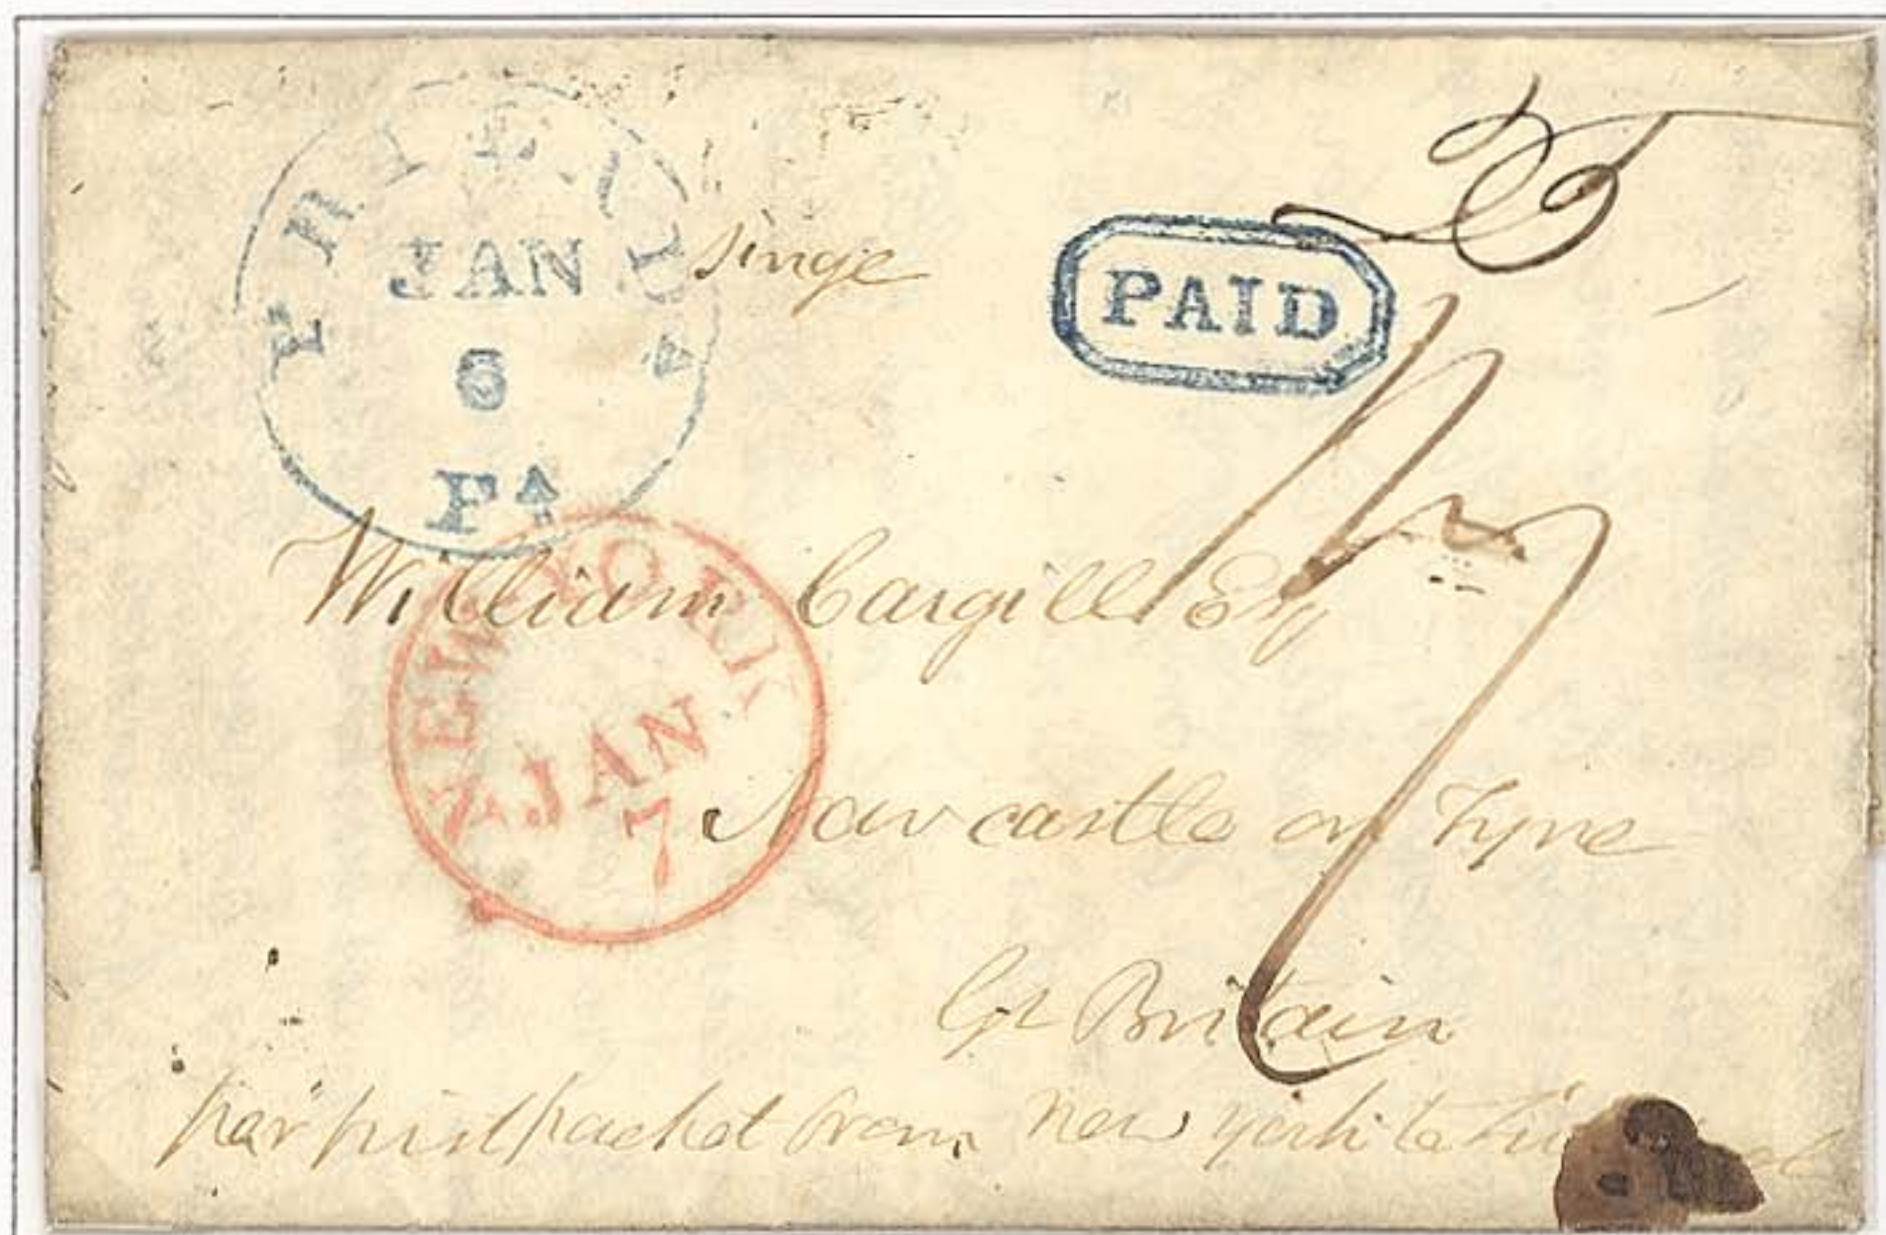 JAN
6
Pa
singe
PAID
William Cargill Esq
NEW YORK
JAN
7
Newcastle on Tyne
Gt Britain
per first packet from New york to